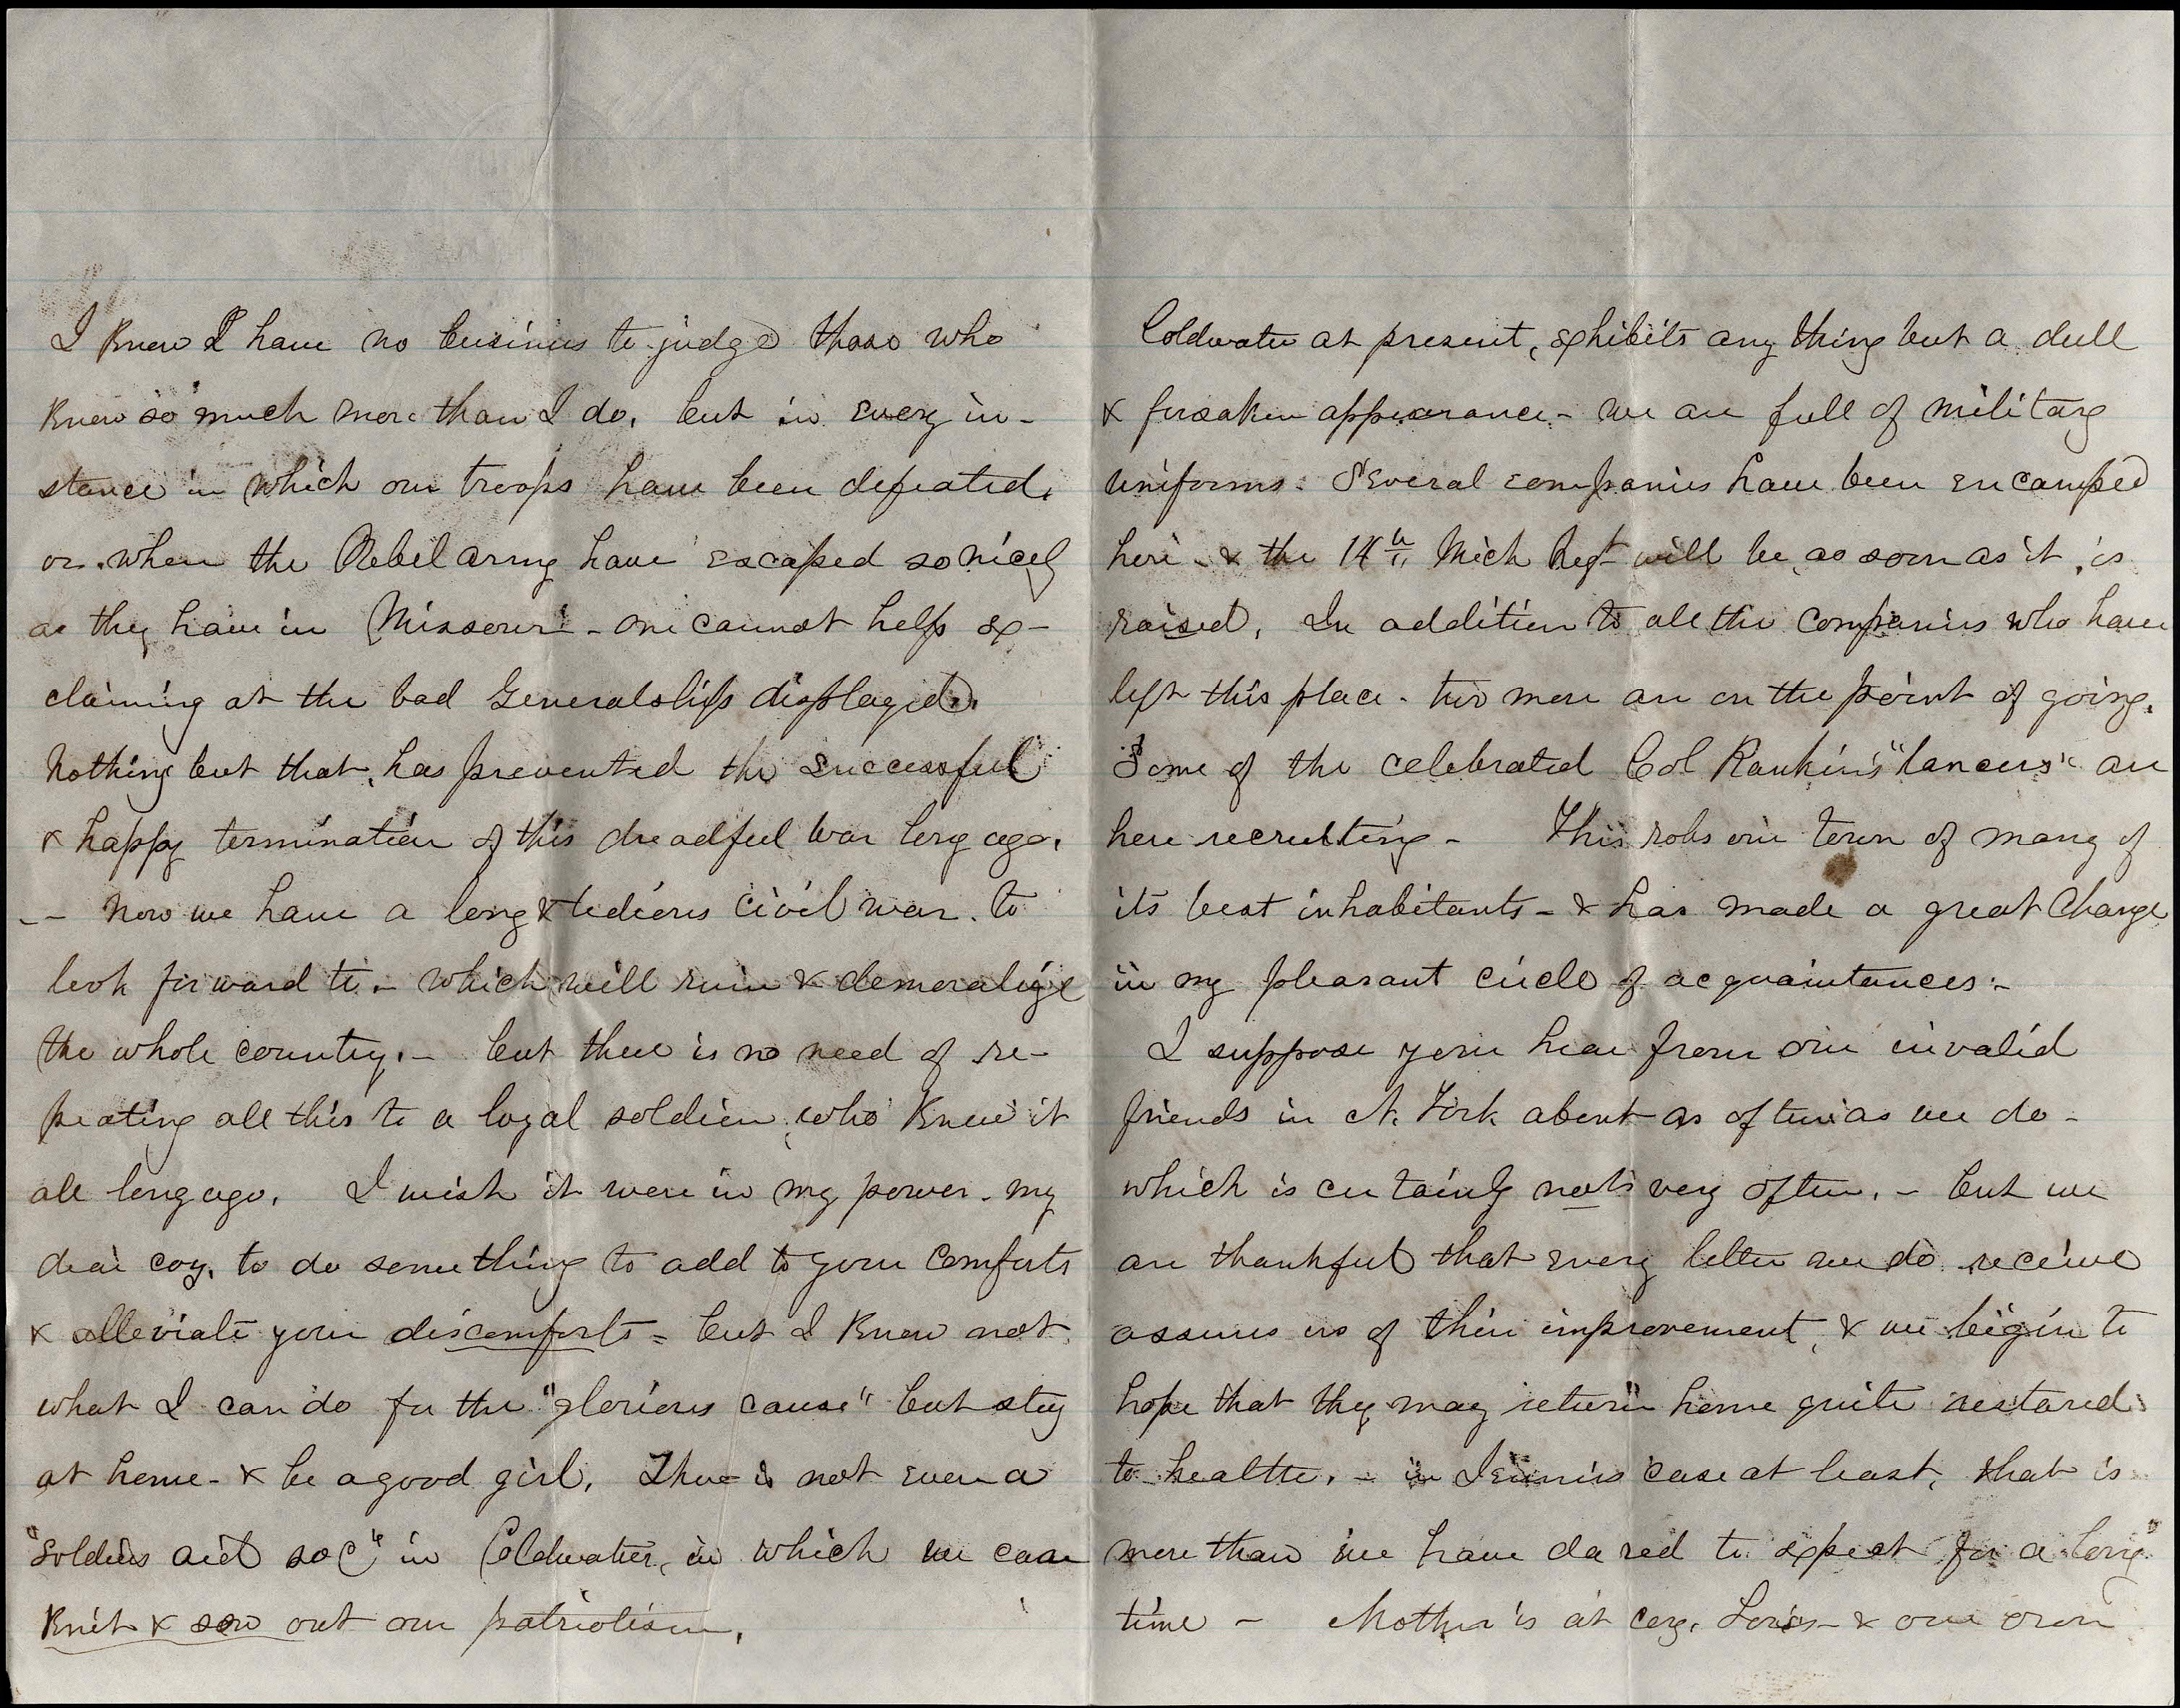 I know I have no business to judge those who
know so much more than I do, but in every in-
stance in which our troops have been defeated,
or when the Rebel army have escaped so nicely
as they have in Missouri - one cannot help ex-
claiming at the bad Generalship displayed.
Nothing but that, has prevented the successful
& happy termination of this dreadful war long ago,
-- now we have a long & tedious civil war, to
look forward to, - which will ruin & demoralize
the whole country. - but there is no need of re-
peating all this to a loyal soldier, who knew it
all long ago. I wish it were in my power - my
dear coz, to do something to add to your comforts
& alleviate your discomforts = but I know not
what I can do for the "glorious cause" but stay
at home - & be a good girl. There is not even a
"soldiers aid soc" in Coldwater, in which we can
knit & sew out our patriotism.
Coldwater at present, exhibits any thing but a dull
& forsaken appearance - we are full of military
uniforms. Several companies have been encamped
here - & the 14th Mich Regt will be, as soon as it is
raised. In addition to all the companies who have
left this place - two more are on the point of going.
Some of the celebrated Col Rankin's "lancers" are
here recruiting - This robs our town of many of
its best inhabitants - & has made a great change
in my pleasant circle of acquaintances. -
I suppose you hear from our invalid
friends in N. York about as often as we do -
which is certainly not very often. - but we
are thankful that every letter we do receive
assures us of their improvement, & we begin to
hope that they may return home quite restored
to health. - in Jennies case at least, that is
more than we have dared to expect for a long
time - Mother is at coz. Lois - & our own